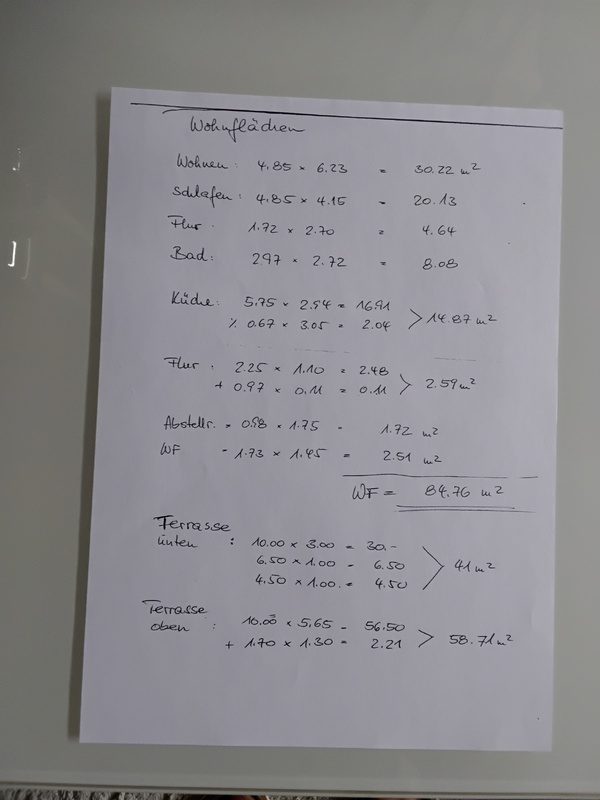 Wohnflächen
Wohnen: 4.85 × 6.23 = 30.22 m²
Schlafen: 4.85 × 4.15 - 20.13
Flur: 1.72 × 2.70 = 4.64
Bad: 2.97 × 2.72 = 8.08
Küche: 5.75 × 2.94 = 16.91
% 0.67 × 3.05 = 2.04 > 14.87 m²
Flur: 2.25 × 1.10 = 2.48
+ 0.97 × 0.11 = 0.11 > 2.59 m²
Abstellr. = 0.98 × 1.75 - 1.72 m²
WF - 1.73 × 1.45 = 2.51 m²
WF = 84.76 m²
Terrasse
unten : 10.00 × 3.00 = 30.-
6.50 × 1.00 - 6.50 > 41 m²
4.50 × 1.00. = 4.50
Terrasse
oben : 10.00 × 5.65 - 56.50
+ 1.70 × 1.30 = 2.21 > 58.71 m²